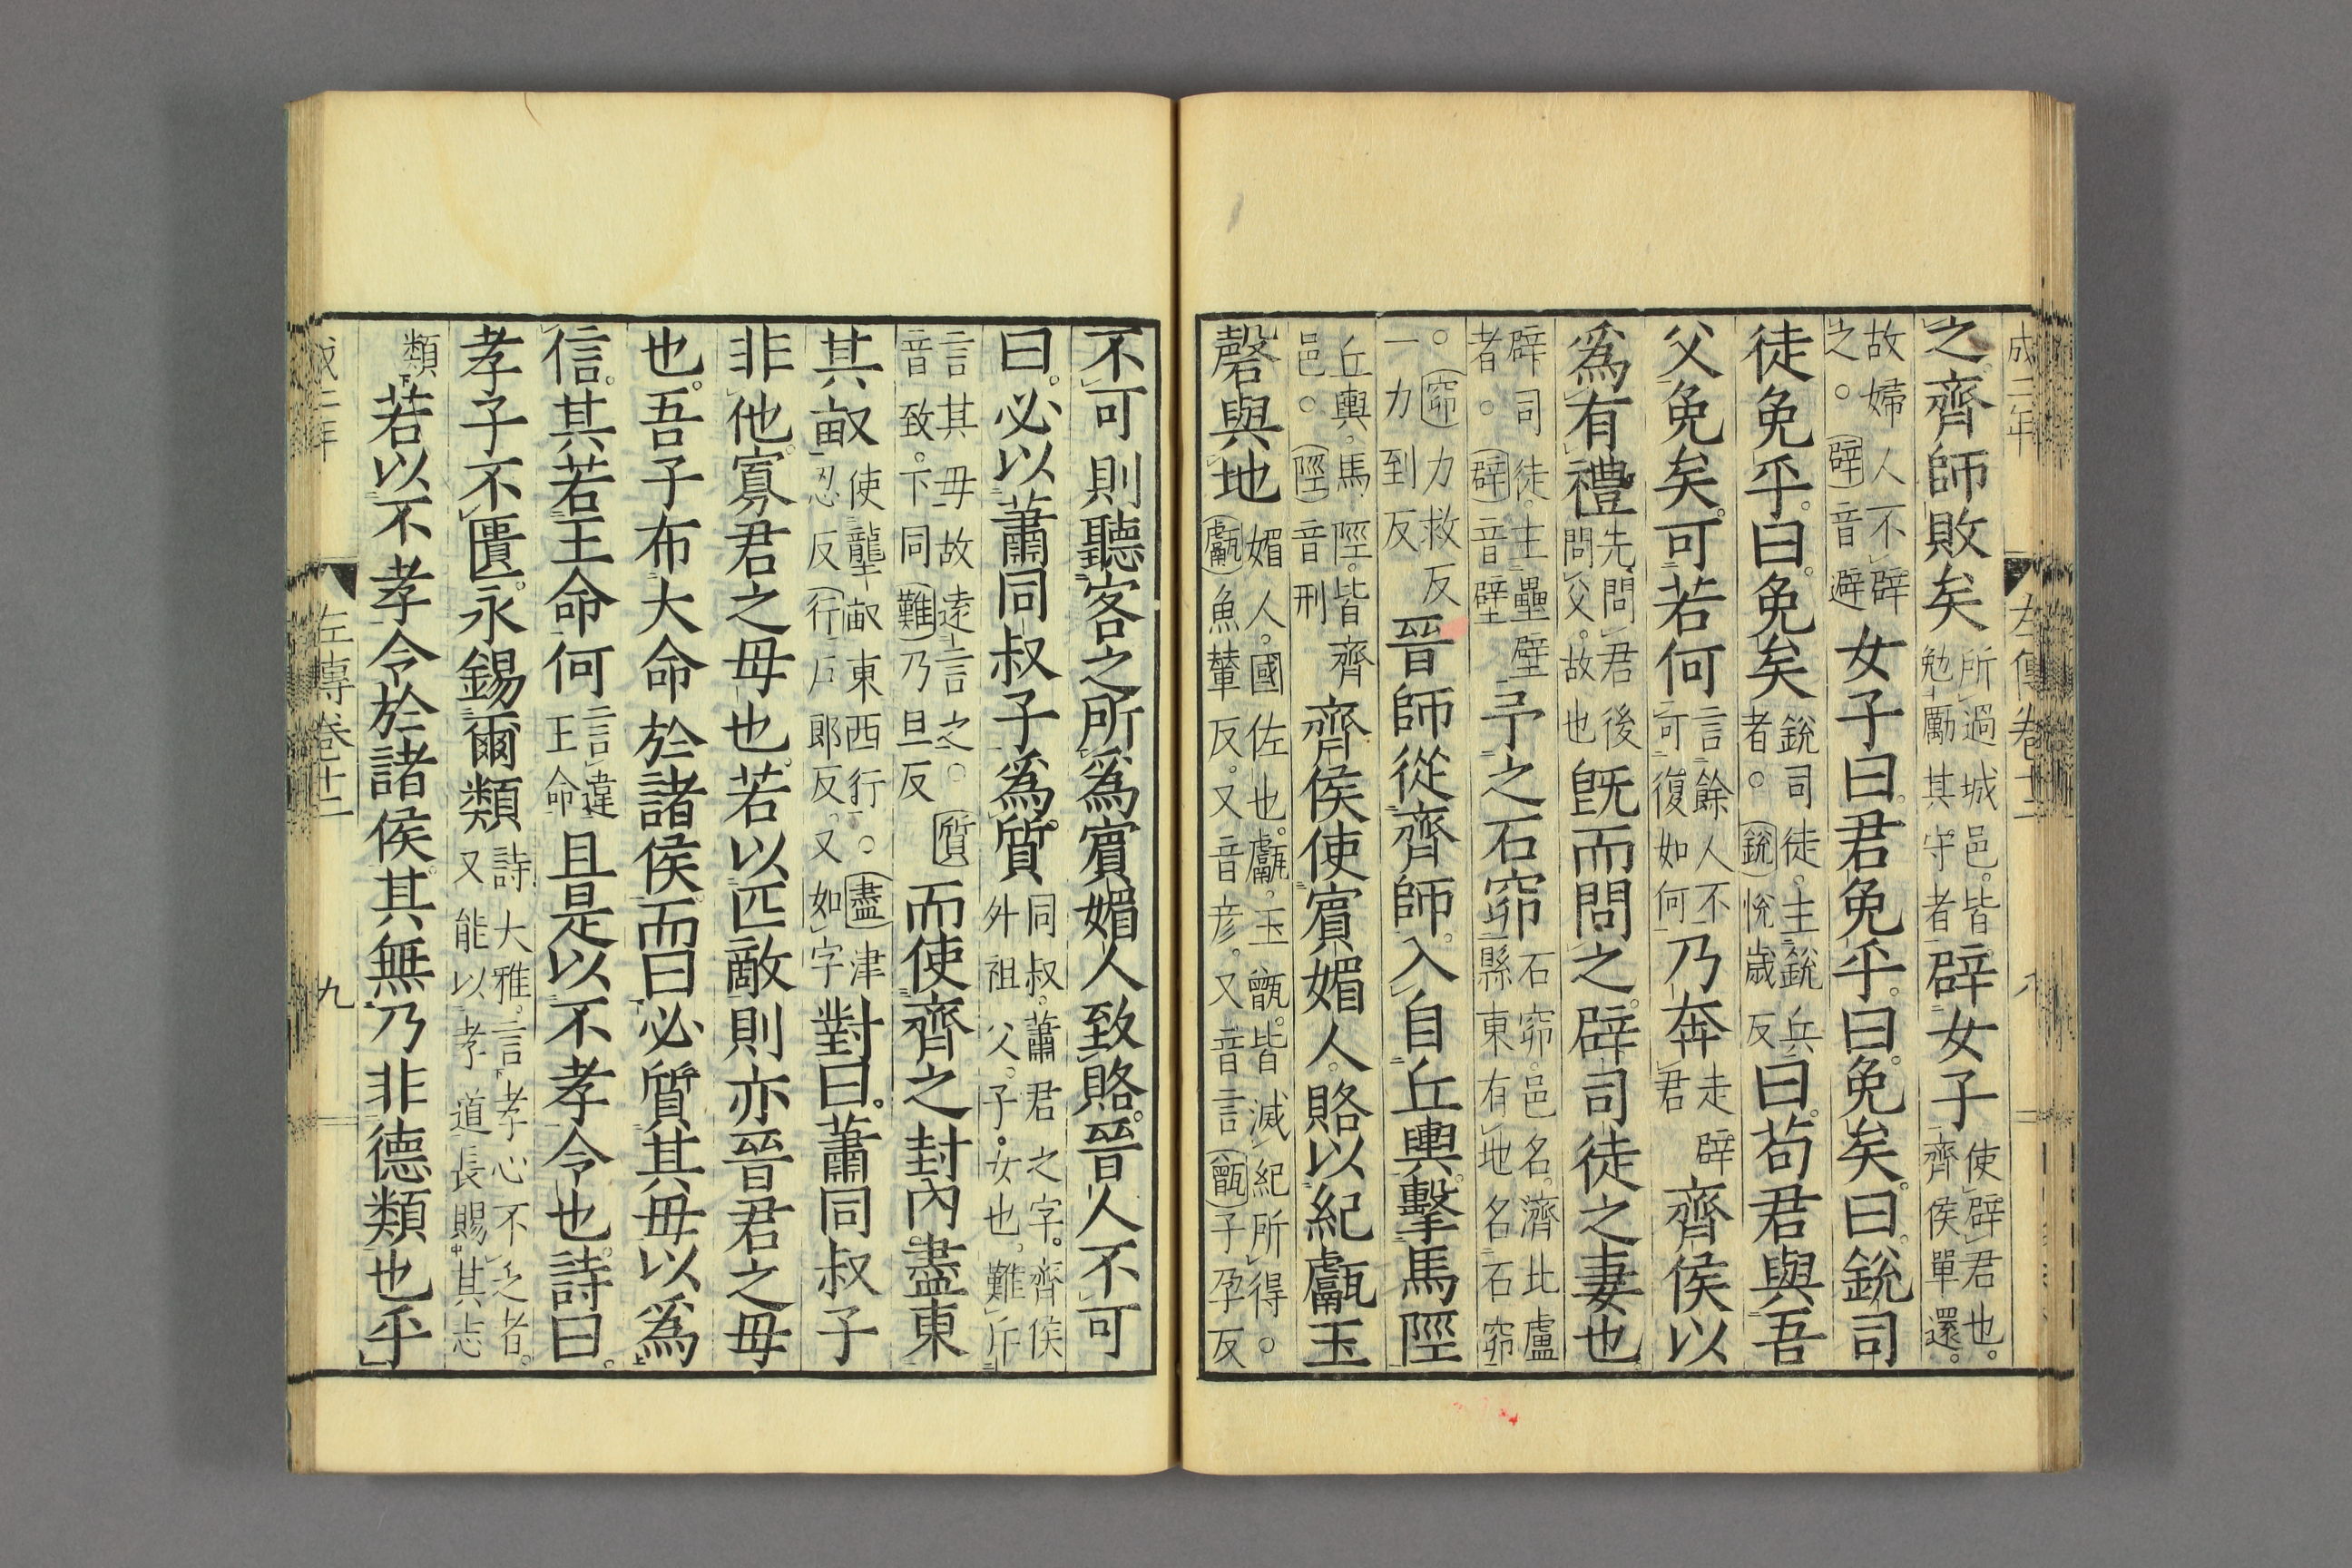 成二年 左傳卷十二 八
之齊師敗矣所過城邑皆勉勵其守者辟女子使辟君也齊侯單還
故婦人不辟之。辟音避女子曰君免乎曰免矣曰銳司
徒免乎曰免矣銳司徒主銳兵者。銳悅歲反曰苟君與吾
父免矣可若何言餘人不可復如何乃奔走辟君齊侯以
爲有禮先問君後問父故也旣而問之辟司徒之妻也
辟司徒主壘壁者。辟音壁予之石窌石窌邑名濟北盧縣東有地名石窌
。窌力救反一力到反晉師從齊師入自丘輿擊馬陘
丘輿馬陘皆齊邑。陘音刑齊侯使賓媚人賂以紀甗玉
磬與地媚人國佐也甗玉甑皆滅紀所得。甗魚輦反又音彦又音言甑子孕反
不可則聽客之所爲賓媚人致賂晉人不可
曰必以蕭同叔子爲質同叔蕭君之字齊侯外祖父子女也難斥
言其毋故遠言之。質音致下同難乃旦反而使齊之封內盡東
其畝使壟畝東西行。盡津忍反行戶郎反又如字對曰蕭同叔子
非他寡君之毋也若以匹敵則亦晉君之毋
也吾子布大命於諸侯而曰必質其毋以爲
信其若王命何言違王命且是以不孝令也詩曰
孝子不匱永錫爾類詩大雅言孝心不乏者又能以孝道長賜其志
類若以不孝令於諸侯其無乃非德類也乎
成二年 左傳卷十二 九